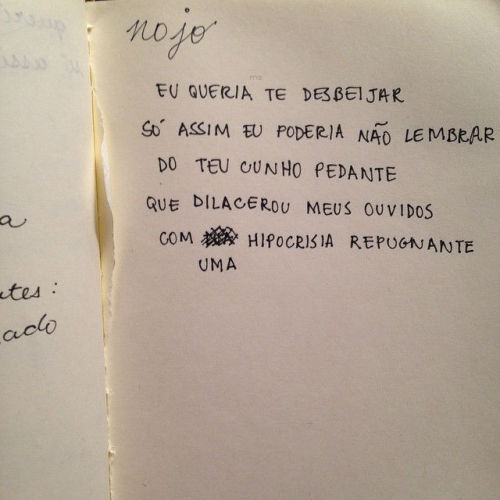 nojo
EU QUERIA TE DESBEIJAR
SÓ ASSIM EU PODERIA NÃO LEMBRAR
DO TEU CUNHO PEDANTE
QUE DILACEROU MEUS OUVIDOS
COM HIPOCRISIA REPUGNANTE
UMA
a
ntes:
ado